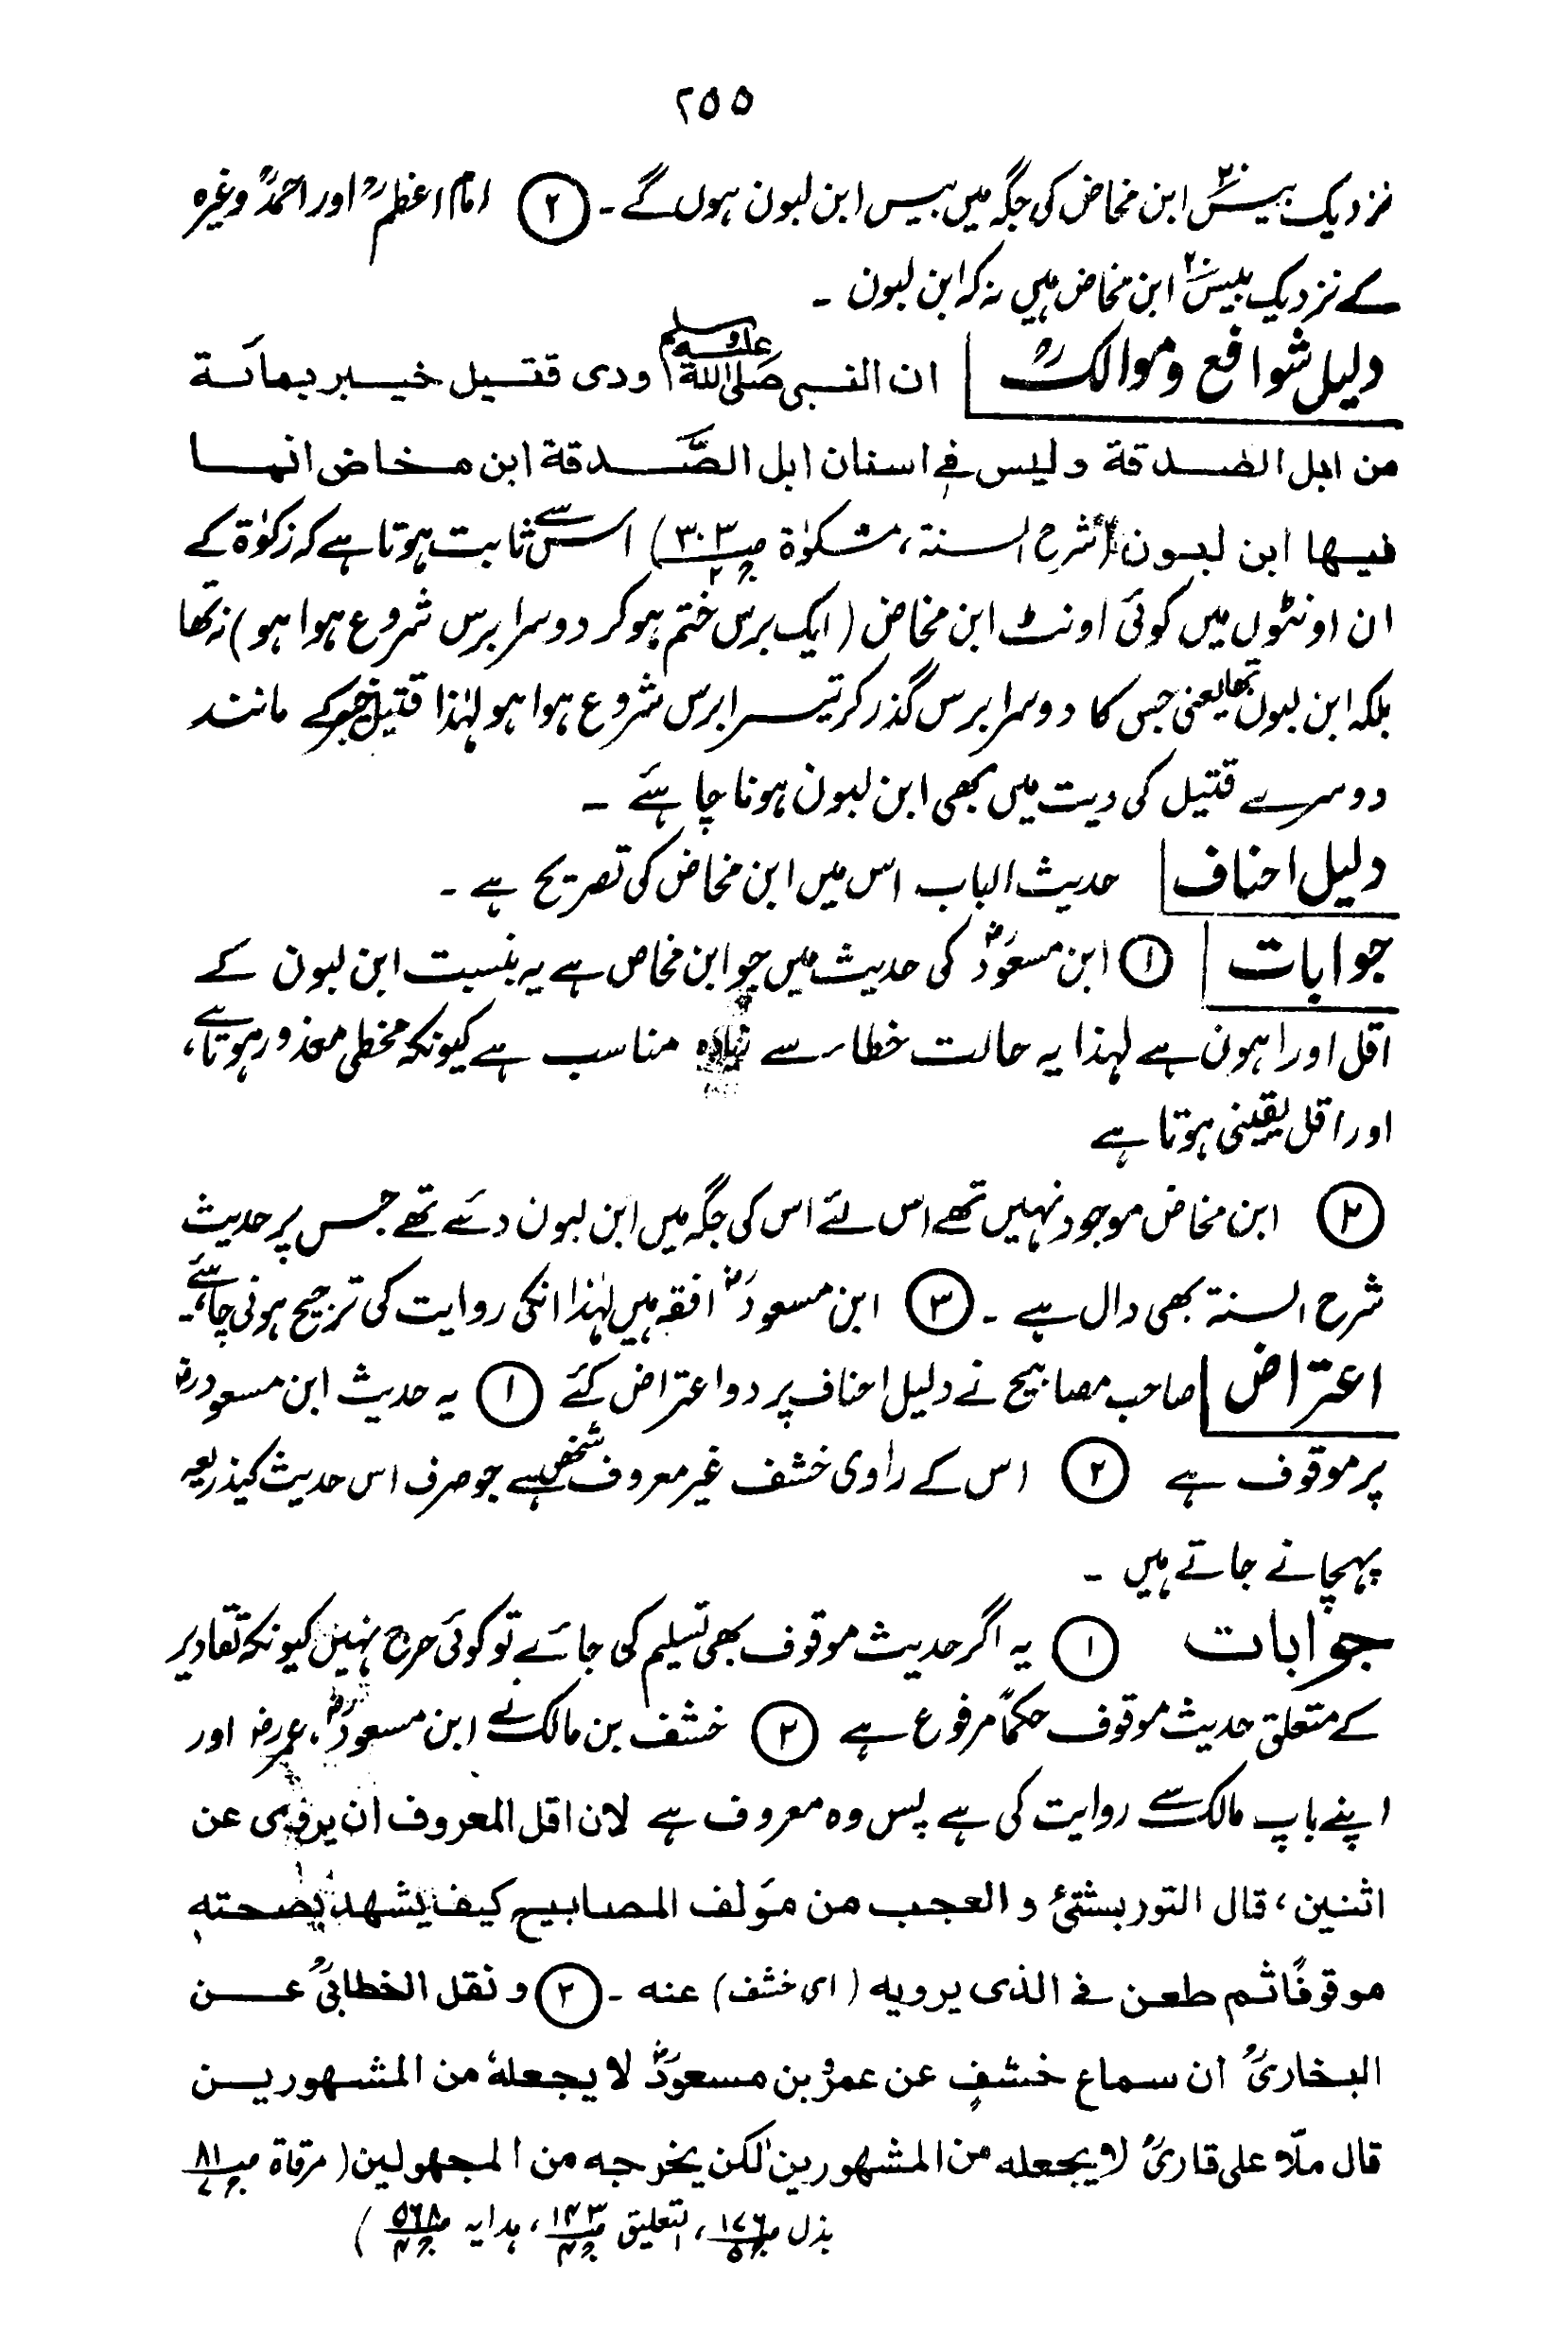 ۲۵۵
نزدیک بیسؓ۲۰ ابن مخاض کی جگہ میں بیس ابن لبون ہوں گے ۔ ② امام اعظمؒ اور احمدؒ وغیرہ
کے نزدیک بیس۲۰ ابن مخاض ہیں نہ کہ ابن لبون ۔
دلیل شوافع وموالکؒ ان النبی صلی اللہ علیہ وسلم ودی قتیل خیبر بمائة
من ابل الصدقة ولیس فی اسنان ابل الصَّدقة ابن مخاض انما
فیہا ابن لبون (شرح السنة، مشکوٰة ص۳۰۳ ج۲) اس سے ثابت ہوتا ہے کہ زکوٰة کے
ان اونٹوں میں کوئی اونٹ ابن مخاض (ایک برس ختم ہوکر دوسرا برس شروع ہوا ہو) نہ تھا
بلکہ ابن لبون تھا یعنی جس کا دوسرا برس گذر کر تیسرا برس شروع ہوا ہو لہٰذا قتیل خیبر کے مانند
دوسرے قتیل کی دیت میں بھی ابن لبون ہونا چاہئے ۔
دلیل احناف حدیث الباب اس میں ابن مخاض کی تصریح ہے ۔
جوابات ① ابن مسعودؓ کی حدیث میں جو ابن مخاص ہے یہ بنسبت ابن لبون کے
اقل اور اہون ہے لہذا یہ حالت خطاء سے زیادہ مناسب ہے کیونکہ مخطی معذور ہوتا ہے،
اور اقل یقینی ہوتا ہے
② ابن مخاض موجود نہیں تھے اس لئے اس کی جگہ میں ابن لبون دئے تھے جس پر حدیث
شرح السنة بھی دال ہے ۔ ③ ابن مسعودؓ افقہ ہیں لہٰذا انکی روایت کی ترجیح ہونی چاہئے۔
اعتراض صاحب مصابیح نے دلیل احناف پر دو اعتراض کئے ① یہ حدیث ابن مسعودرض
پر موقوف ہے ② اس کے راوی خشف غیر معروف شخص ہے جو صرف اس حدیث کیذریعہ
پہچانے جاتے ہیں ۔
جوابات ① یہ اگر حدیث موقوف بھی تسلیم کی جائے تو کوئی حرج نہیں کیونکہ تقادیر
کے متعلق حدیث موقوف حکمًا مرفوع ہے ② خشف بن مالک نے ابن مسعودؓ، عمررض اور
اپنے باپ مالک سے روایت کی ہے پس وہ معروف ہے لان اقل المعروف ان یروی عن
اثنین، قال التوربشتیؒ و العجب من مؤلف المصابیح کیف یشھد بصحتہٖ
موقوفًا ثم طعن فی الذی یرویہ (ای خشف) عنہ ۔ ② و نقل الخطابیؒ عن
البخاریؒ ان سماع خشفٍ عن عمرؓ بن مسعودؓ لا یجعلہٗ من المشھورین
قال ملّا علی قاریؒ لا یجعلہ من المشھورین لکن یخرجہ من المجھولین (مرقاة ص۸۱ ج۷
بذل ص۱۷۶ ج۵، التعلیق ص۱۴۳ ج۴، ہدایہ ص۵۶۸ ج۴)